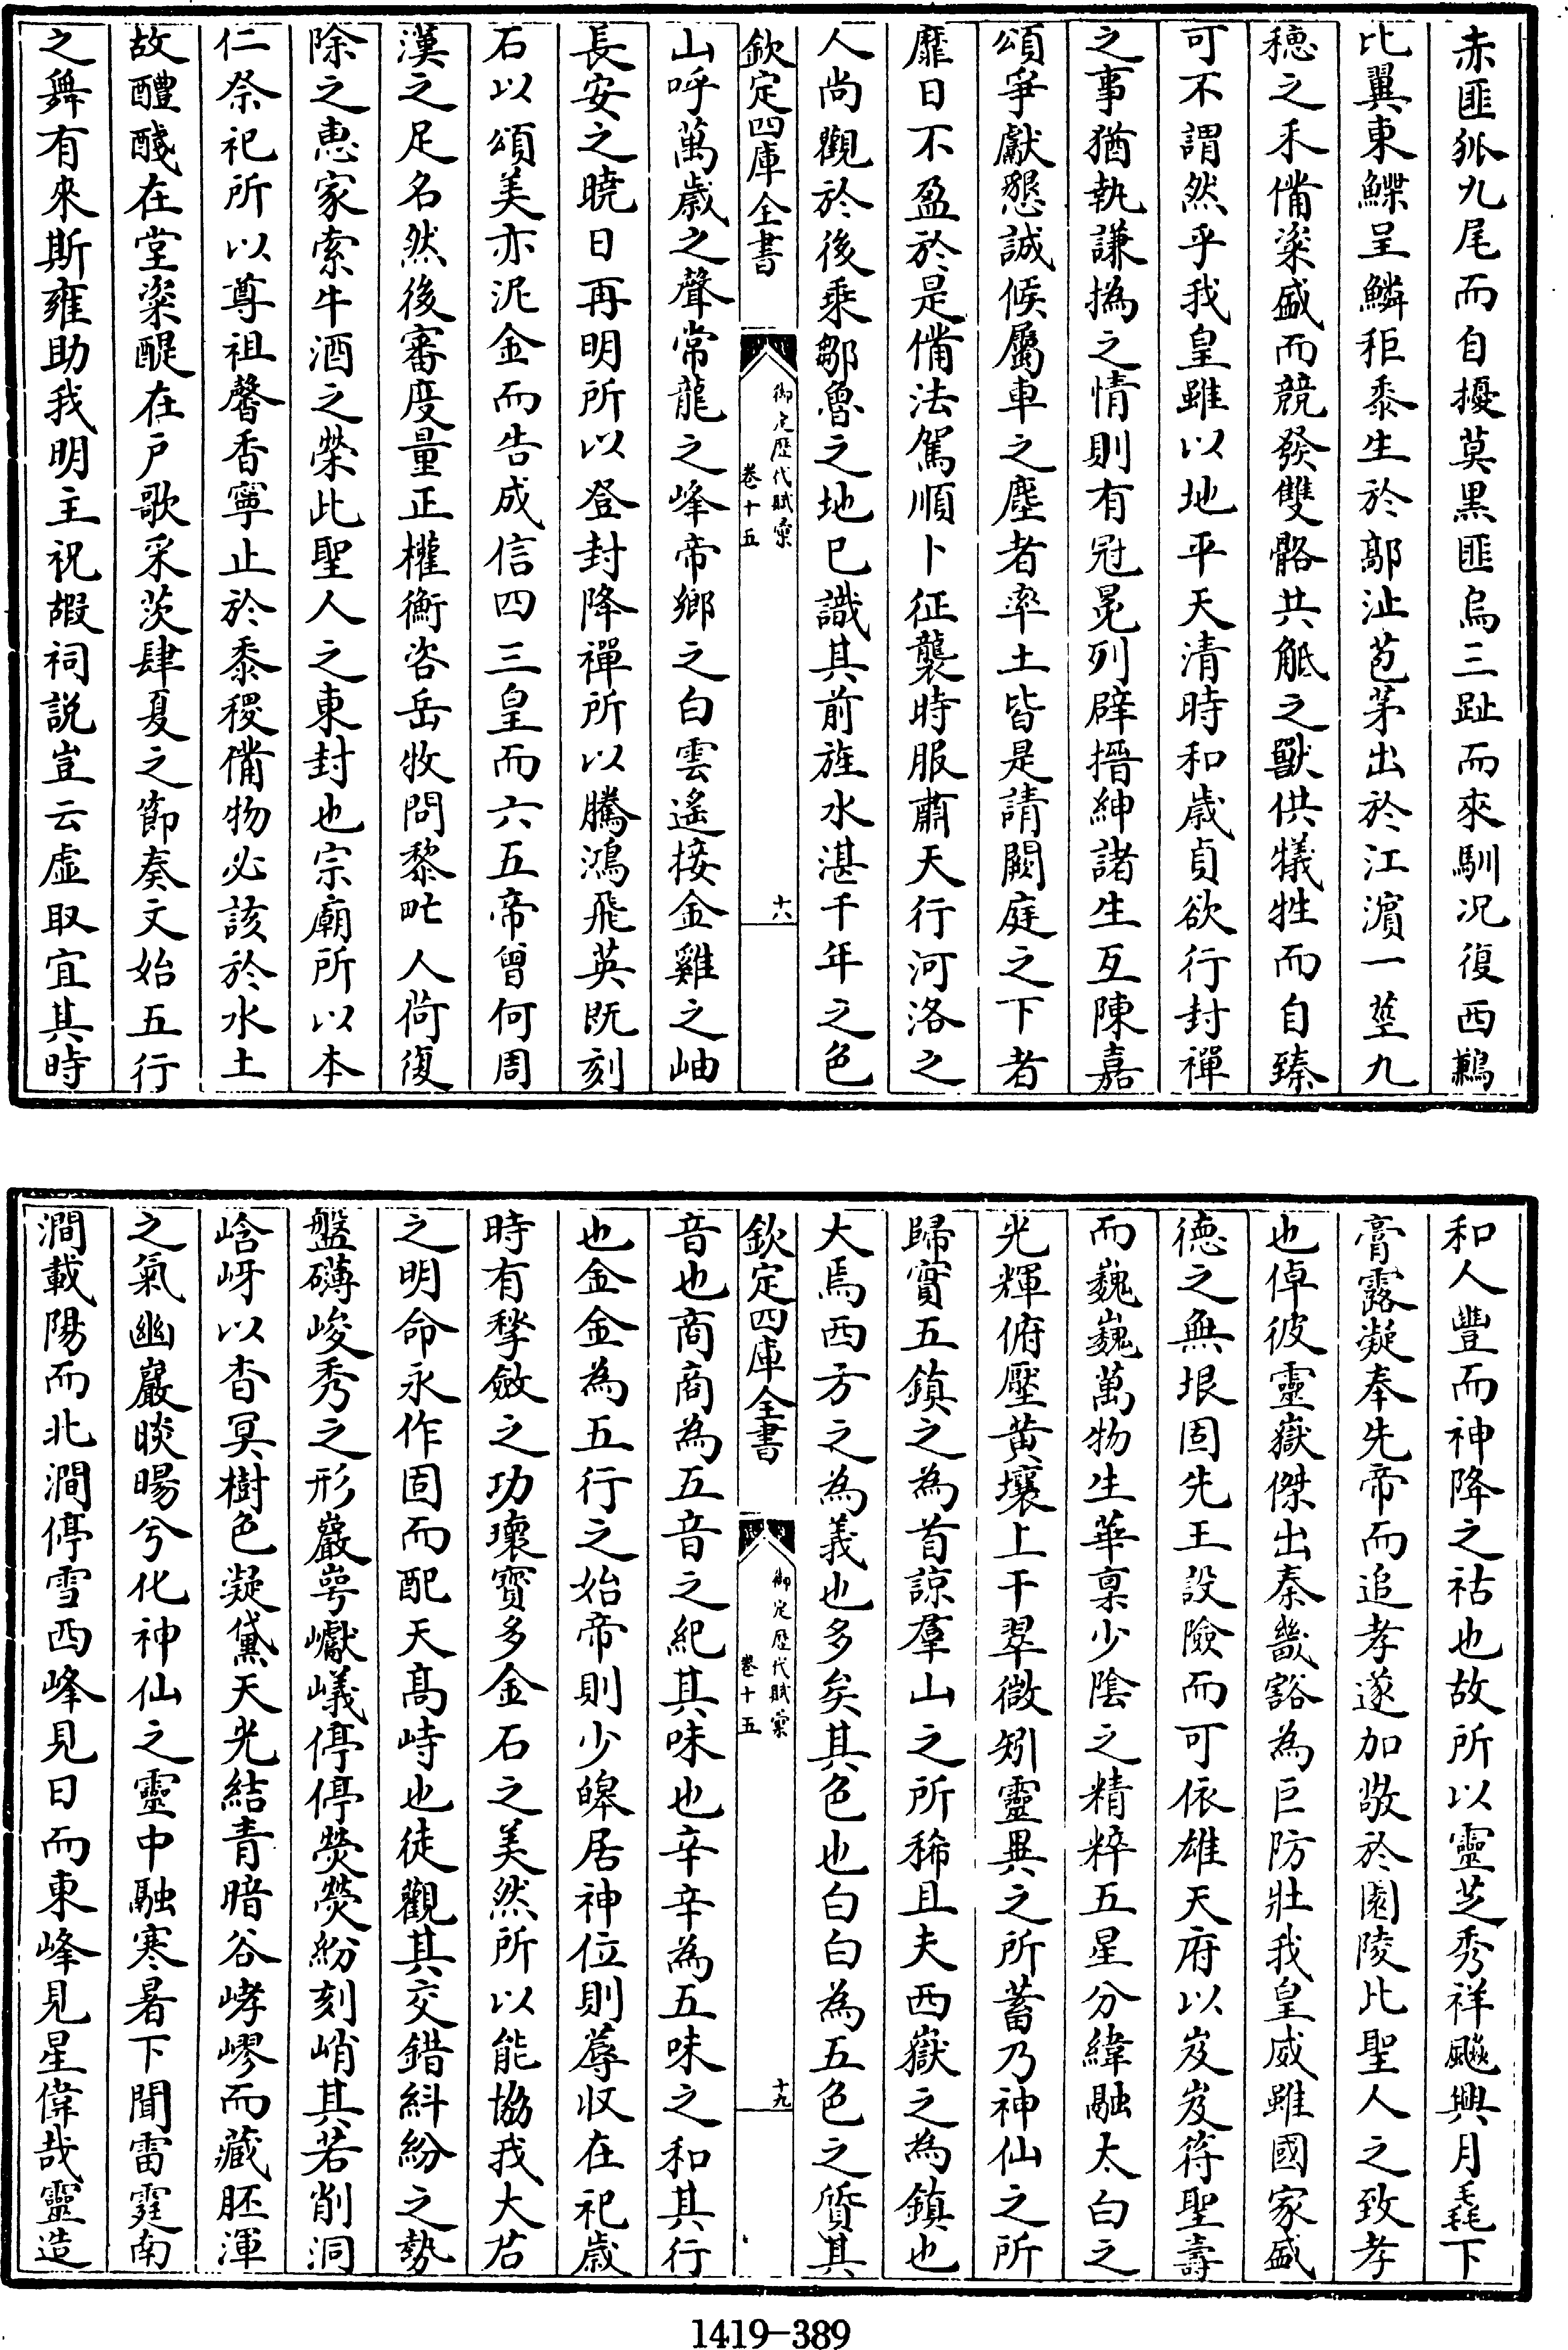 赤匪狐九尾而自擾莫黑匪烏三趾而來馴况復西鶼
比翼東鰈呈鱗秬黍生於鄗沚苞茅出於江濵一莖九
穗之禾備粢盛而競發雙骼共觝之獸供犧牲而自臻
可不謂然乎我皇雖以地平天清時和歳貞欲行封禪
之事猶執謙撝之情則有冠冕列辟搢紳諸生互陳嘉
頌爭獻懇誠候屬車之塵者率土皆是請闕庭之下者
靡日不盈於是備法駕順卜征襲時服肅天行河洛之
人尚觀於後乘鄒魯之地已識其前旌水湛千年之色
欽定四庫全書
御定歴代賦彚
卷十五
十八
山呼萬歳之聲常龍之峰帝鄉之白雲遙接金雞之岫
長安之曉日再明所以登封降禪所以騰鴻飛英既刻
石以頌美亦泥金而告成信四三皇而六五帝曾何周
漢之足名然後審度量正權衡咨岳牧問黎甿人荷復
除之惠家索牛酒之榮此聖人之東封也宗廟所以本
仁祭祀所以尊祖馨香寧止於黍稷備物必該於水土
故醴醆在堂粢醍在户歌采茨肆夏之節奏文始五行
之舞有來斯雍助我明主祝嘏祠説豈云虛取宜其時
和人豐而神降之祜也故所以靈芝秀祥飈興月毳下
膏露凝奉先帝而追孝遂加敬於園陵比聖人之致孝
也倬彼靈嶽傑出秦畿豁為巨防壯我皇威雖國家盛
德之無垠固先王設險而可依雄天府以岌岌符聖壽
而巍巍萬物生華稟少陰之精粹五星分緯融太白之
光輝俯壓黄壤上干翠微矧靈異之所蓄乃神仙之所
歸實五鎮之為首諒羣山之所稀且夫西嶽之為鎮也
大焉西方之為義也多矣其色也白白為五色之質其
欽定四庫全書
御定歴代賦彚
卷十五
十九
音也商商為五音之紀其味也辛辛為五味之和其行
也金金為五行之始帝則少皞居神位則蓐收在祀歳
時有揫斂之功瓌寶多金石之美然所以能協我大君
之明命永作固而配天髙峙也徒觀其交錯糾紛之勢
盤礴峻秀之形巖崿巘嶬停停熒熒紛刻峭其若削洞
峆岈以杳冥樹色凝黛天光結青暗谷哮嵺而藏胚渾
之氣幽巖晱暘兮化神仙之靈中融寒暑下聞雷霆南
澗載陽而北澗停雪西峰見日而東峰見星偉哉靈造
1419-389